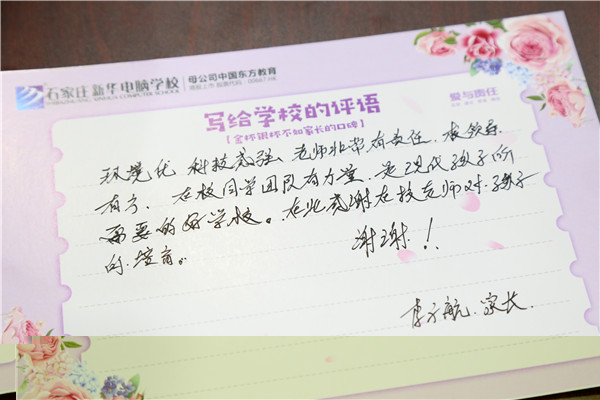 石家庄新华电脑学校
SHIJIAZHUANG XINHUA COMPUTER SCHOOL
母公司中国东方教育
港股上市 股票代码:00667.HK
爱与责任
写给学校的评语
【金杯银杯不如家长的口碑】
环境优 科技感强、老师非常有责任.校领导
有方. 在校同学团队有力量.是现代孩子所
需要的好学校。在此感谢在校老师对.孩子
的.培育。
谢谢!!
李方航.家长.